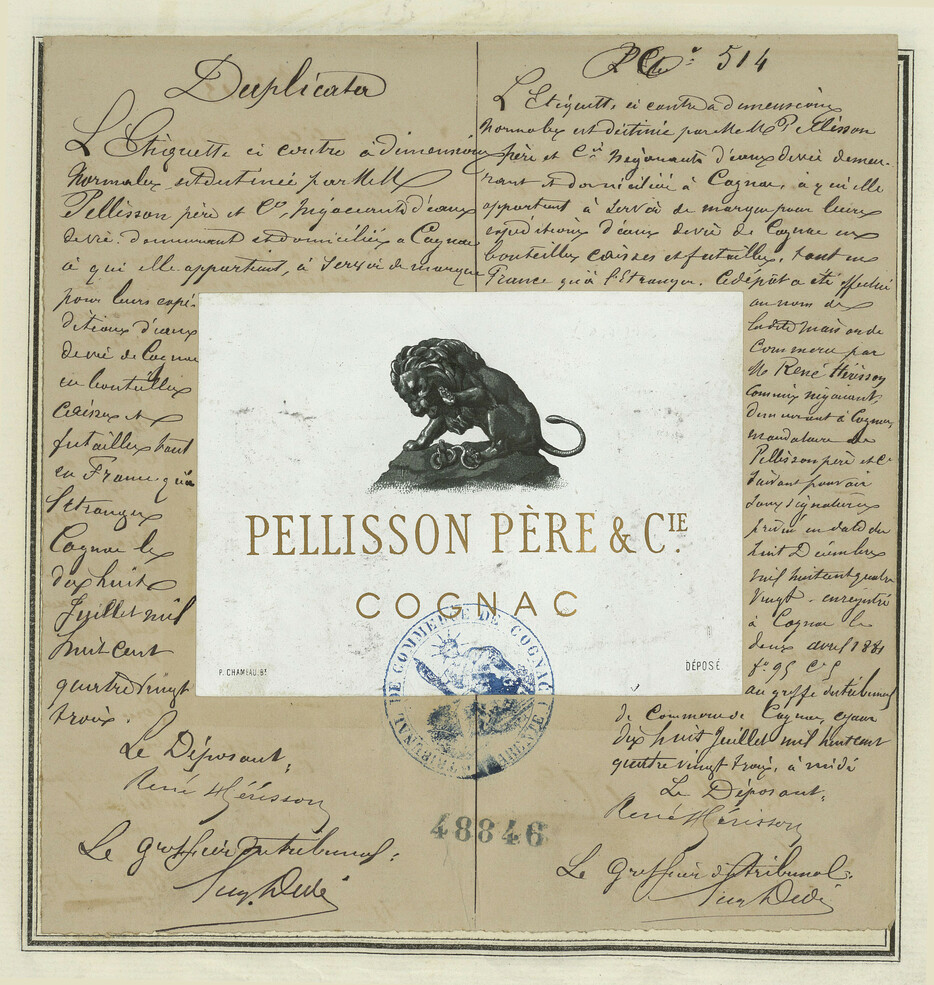 Duplicata
L'Etiquette ci contre à dimensions
Normales est destinée par M M
Pellisson père et Cie, Négociants d'eaux
de vie demeurant et domiciliés à Cognac
à qui elle appartient, à servir de marque
pour leurs expé-
ditions d'eaux
de vie de Cognac
en bouteilles
caisses et
futailles tant
en France qu'à
l'étranger
Cognac le
dix huit
Juillet mil
huit cent
quatre vingt
trois.
Le Déposant,
René Hérisson
Le greffier du tribunal:
514
L'Etiquette ci contre à dimensions
Normales est destinée par M M Pellisson
père et Cie Négociants d'eaux de vie demeu-
rant et domiciliés à Cognac, à qui elle
appartient à servir de marque pour leurs
expéditions d'eaux de vie de Cognac en
bouteilles caisses et futailles, tant en
France qu'à l'Etranger. Ce dépôt a été effectué
au nom de
ladite maison de
Commerce par
M. René Hérisson
Commis négociant,
demeurant à Cognac,
mandataire de
Pellisson père et Cie
suivant pouvoir
sous signatures
privées en date du
huit Décembre
mil huit cent quatre
vingt - enregistré
à Cognac le
deux avril 1881
fo 95
au greffe du tribunal
de commerce de Cognac, ce jour
dix huit Juillet mil huit cent
quatre vingt trois, à midi
Le Déposant,
René Hérisson
Le greffier du tribunal:
PELLISSON PÈRE & CIE.
COGNAC
P. CHAMBAU. Bx
DÉPOSÉ
TRIBUNAL DE COMMERCE DE COGNAC CHARENTE
48846